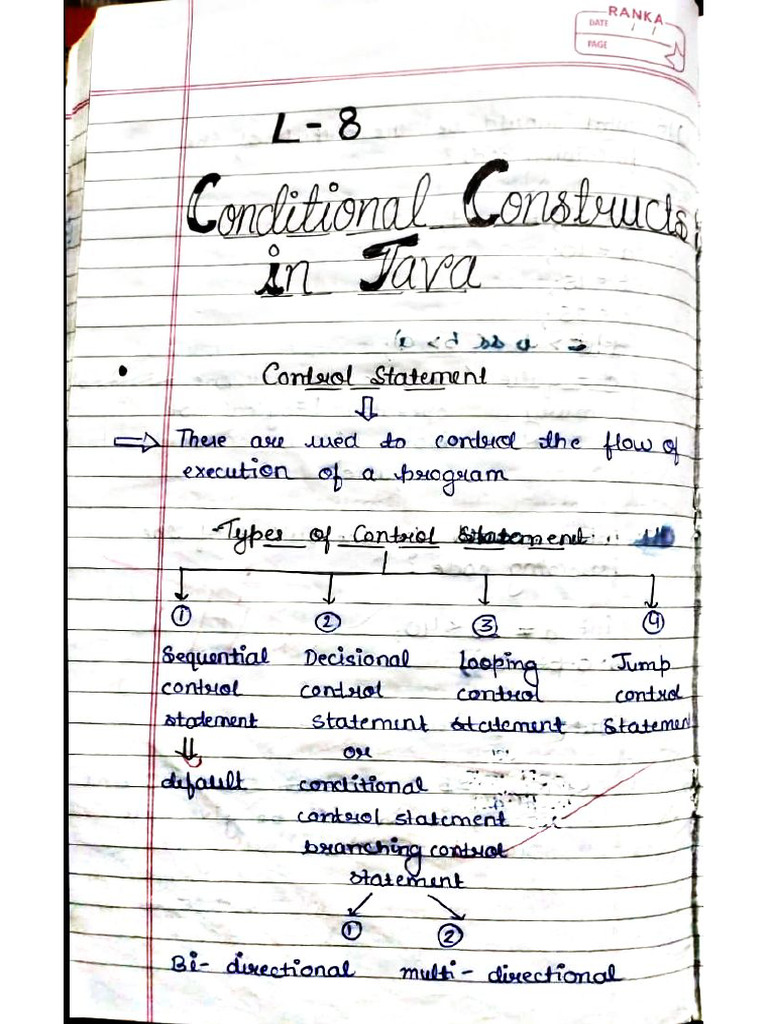 RANKA
DATE / /
PAGE
L-8
Conditional Constructs
in Java
• Control Statement
⇓
⇒ There are used to control the flow of
execution of a program
Types of Control Statement
① ② ③ ④
Sequential Decisional Looping Jump
control control control control
statement statement statement Statement
⇓ or
default conditional
control statement
branching control
statement
① ②
Bi-directional multi-directional